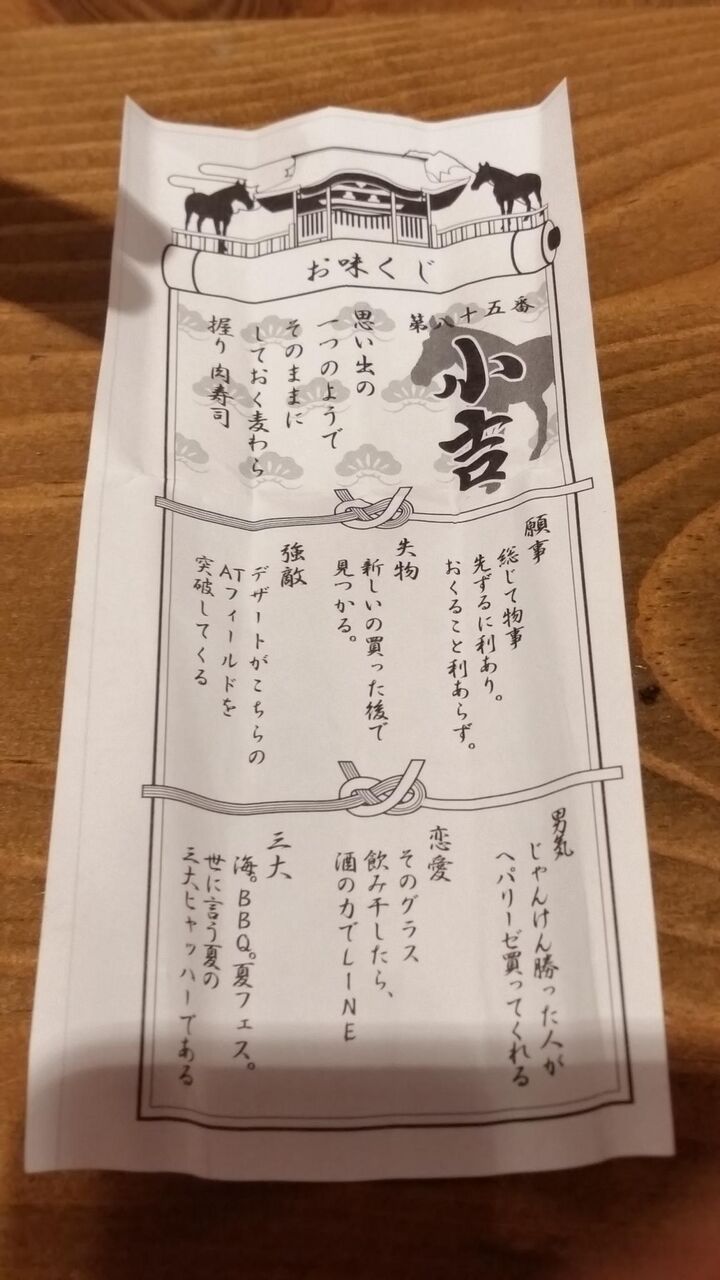 お味くじ
第八十五番
小吉
思い出の
一つのようで
そのままに
しておく麦わら
握り肉寿司
願事
総じて物事
先ずるに利あり。
おくること利あらず。
失物
新しいの買った後で
見つかる。
強敵
デザートがこちらの
ATフィールドを
突破してくる
男気
じゃんけん勝った人が
ヘパリーゼ買ってくれる
恋愛
そのグラス
飲み干したら、
酒の力でLINE
三大
海。BBQ。夏フェス。
世に言う夏の
三大ヒャッハーである